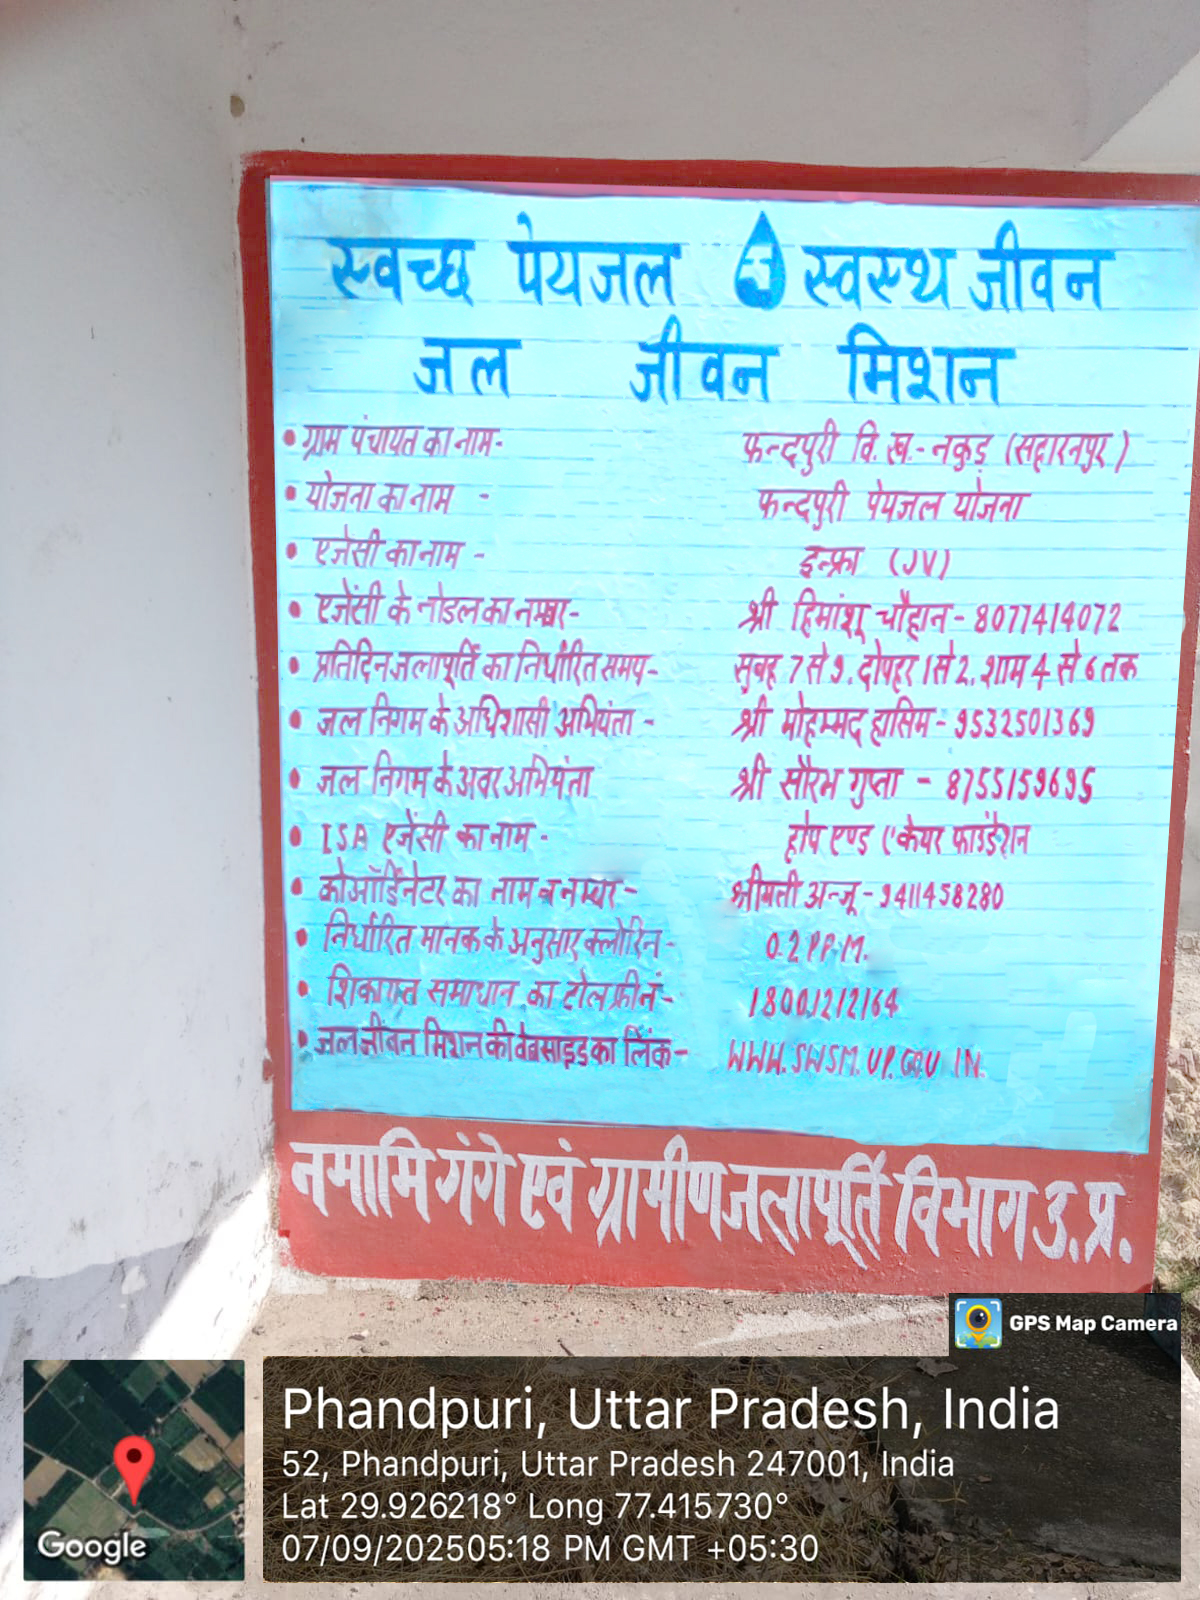 स्वच्छ पेयजल स्वस्थ जीवन
जल जीवन मिशन
• ग्राम पंचायत का नाम- फन्दपुरी वि. ख.- नकुड़ (सहारनपुर)
• योजना का नाम - फन्दपुरी पेयजल योजना
• एजेंसी का नाम - इन्फ्रा (JV)
• एजेंसी के नोडल का नम्बर- श्री हिमांशू चौहान - 8077414072
• प्रतिदिन जलापूर्ति का निर्धारित समय- सुबह 7 से 9. दोपहर 1 से 2. शाम 4 से 6 तक
• जल निगम के अधिशासी अभियंता - श्री मोहम्मद हासिम - 9532501369
• जल निगम के अवर अभियंता श्री सौरभ गुप्ता - 8755159695
• ISA एजेंसी का नाम - होप एण्ड केयर फाउंडेशन
• कोऑर्डिनेटर का नाम व नम्बर - श्रीमती अन्जू - 9411458280
• निर्धारित मानक के अनुसार क्लोरिन - 0.2 P.P.M.
• शिकायत समाधान का टोल फ्री नं- 18001212164
• जल जीवन मिशन की वेबसाइड का लिंक - WWW.SWSM.UP.GOV IN.
नमामि गंगे एवं ग्रामीण जलापूर्ति विभाग उ.प्र.
GPS Map Camera
Phandpuri, Uttar Pradesh, India
52, Phandpuri, Uttar Pradesh 247001, India
Lat 29.926218° Long 77.415730°
07/09/202505:18 PM GMT +05:30
Google